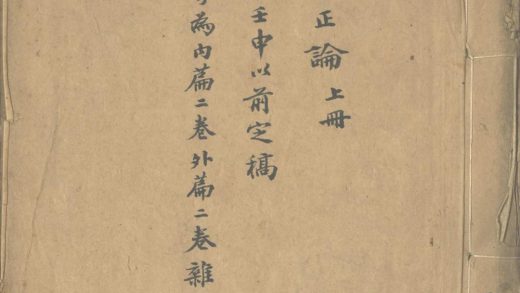 正論上冊
壬申以前定稿
為內篇二卷外篇二卷雜